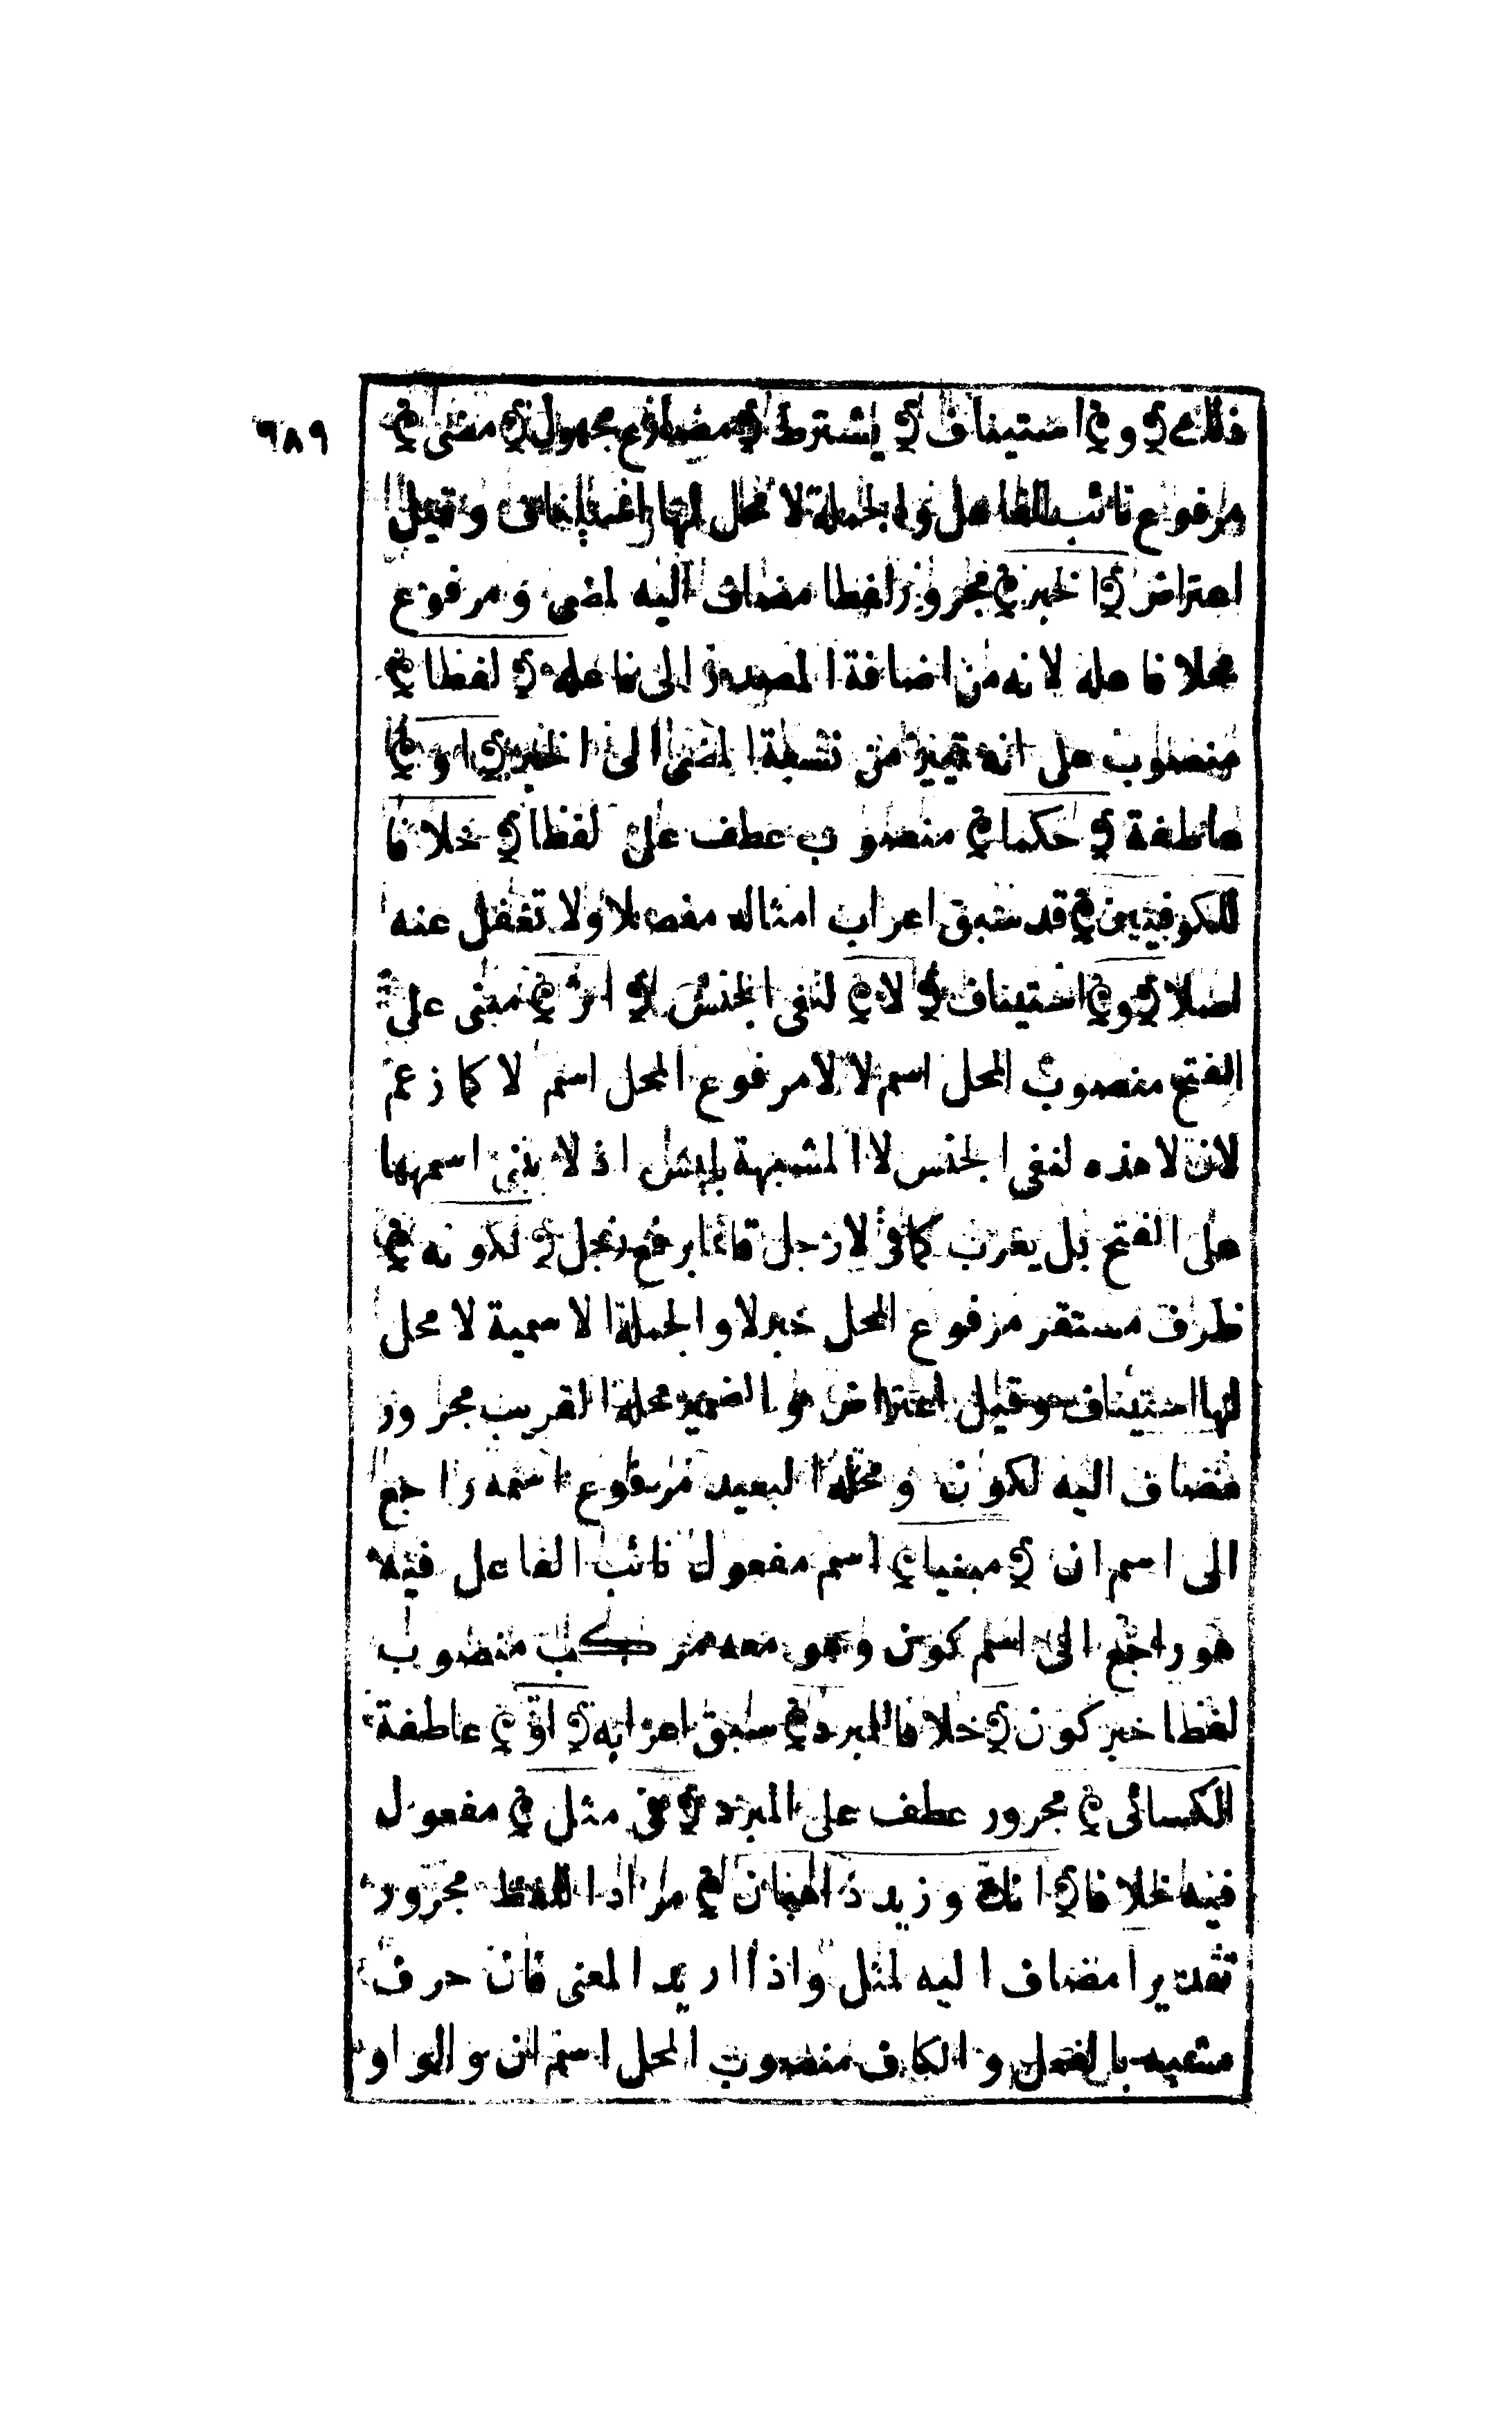 ٦٨٩
﴿و﴾ استيناف ﴿يشترط﴾ مضارع مجهول ﴿مضى﴾
مرفوع نائب الفاعل والجملة لا محل لها استيناف وقيل
اعتراض ﴿الخبر﴾ مجرور لفظا مضاف اليه لمضى ومرفوع
محلا فاعله لانه من اضافة المصدر الى فاعله ﴿لفظا﴾
منصوب على انه تمييز من نسبة المضى الى الخبر ﴿او﴾
عاطفة ﴿حكما﴾ منصوب عطف على لفظا ﴿خلافا
للكوفيين﴾ قد سبق اعراب امثاله مفصلا ولا تغفل عنه
اصلا ﴿و﴾ استيناف ﴿لا﴾ لنفى الجنس ﴿اثر﴾ مبنى على
الفتح منصوب المحل اسم لا لا مرفوع المحل اسم لا كما زعم
لان لا هذه لنفى الجنس لا المشبهة بليس اذ لا يبنى اسمها
على الفتح بل يعرب كما فى لا رجل قائما برفع رجل ﴿لكونه﴾
ظرف مستقر مرفوع المحل خبر لا والجملة الاسمية لا محل
لها استيناف وقيل اعتراض والضمير محله القريب مجرور
مضاف اليه لكون ومحله البعيد مرفوع اسمه راجع
الى اسم ان ﴿مبنيا﴾ اسم مفعول نائب الفاعل فيه
هو راجع الى اسم كون وهو معه مركب منصوب
لفظا خبر كون ﴿خلافا للمبرد﴾ سبق اعرابه ﴿او﴾ عاطفة
الكسائى﴾ مجرور عطف على المبرد ﴿فى مثل﴾ مفعول
فيه لخلافا ﴿انك وزيد ذاهبان﴾ مراد اللفظ مجرور
تقديرا مضاف اليه لمثل واذا اريد المعنى فان حرف
مشبه بالفعل والكاف منصوب المحل اسم ان والواو